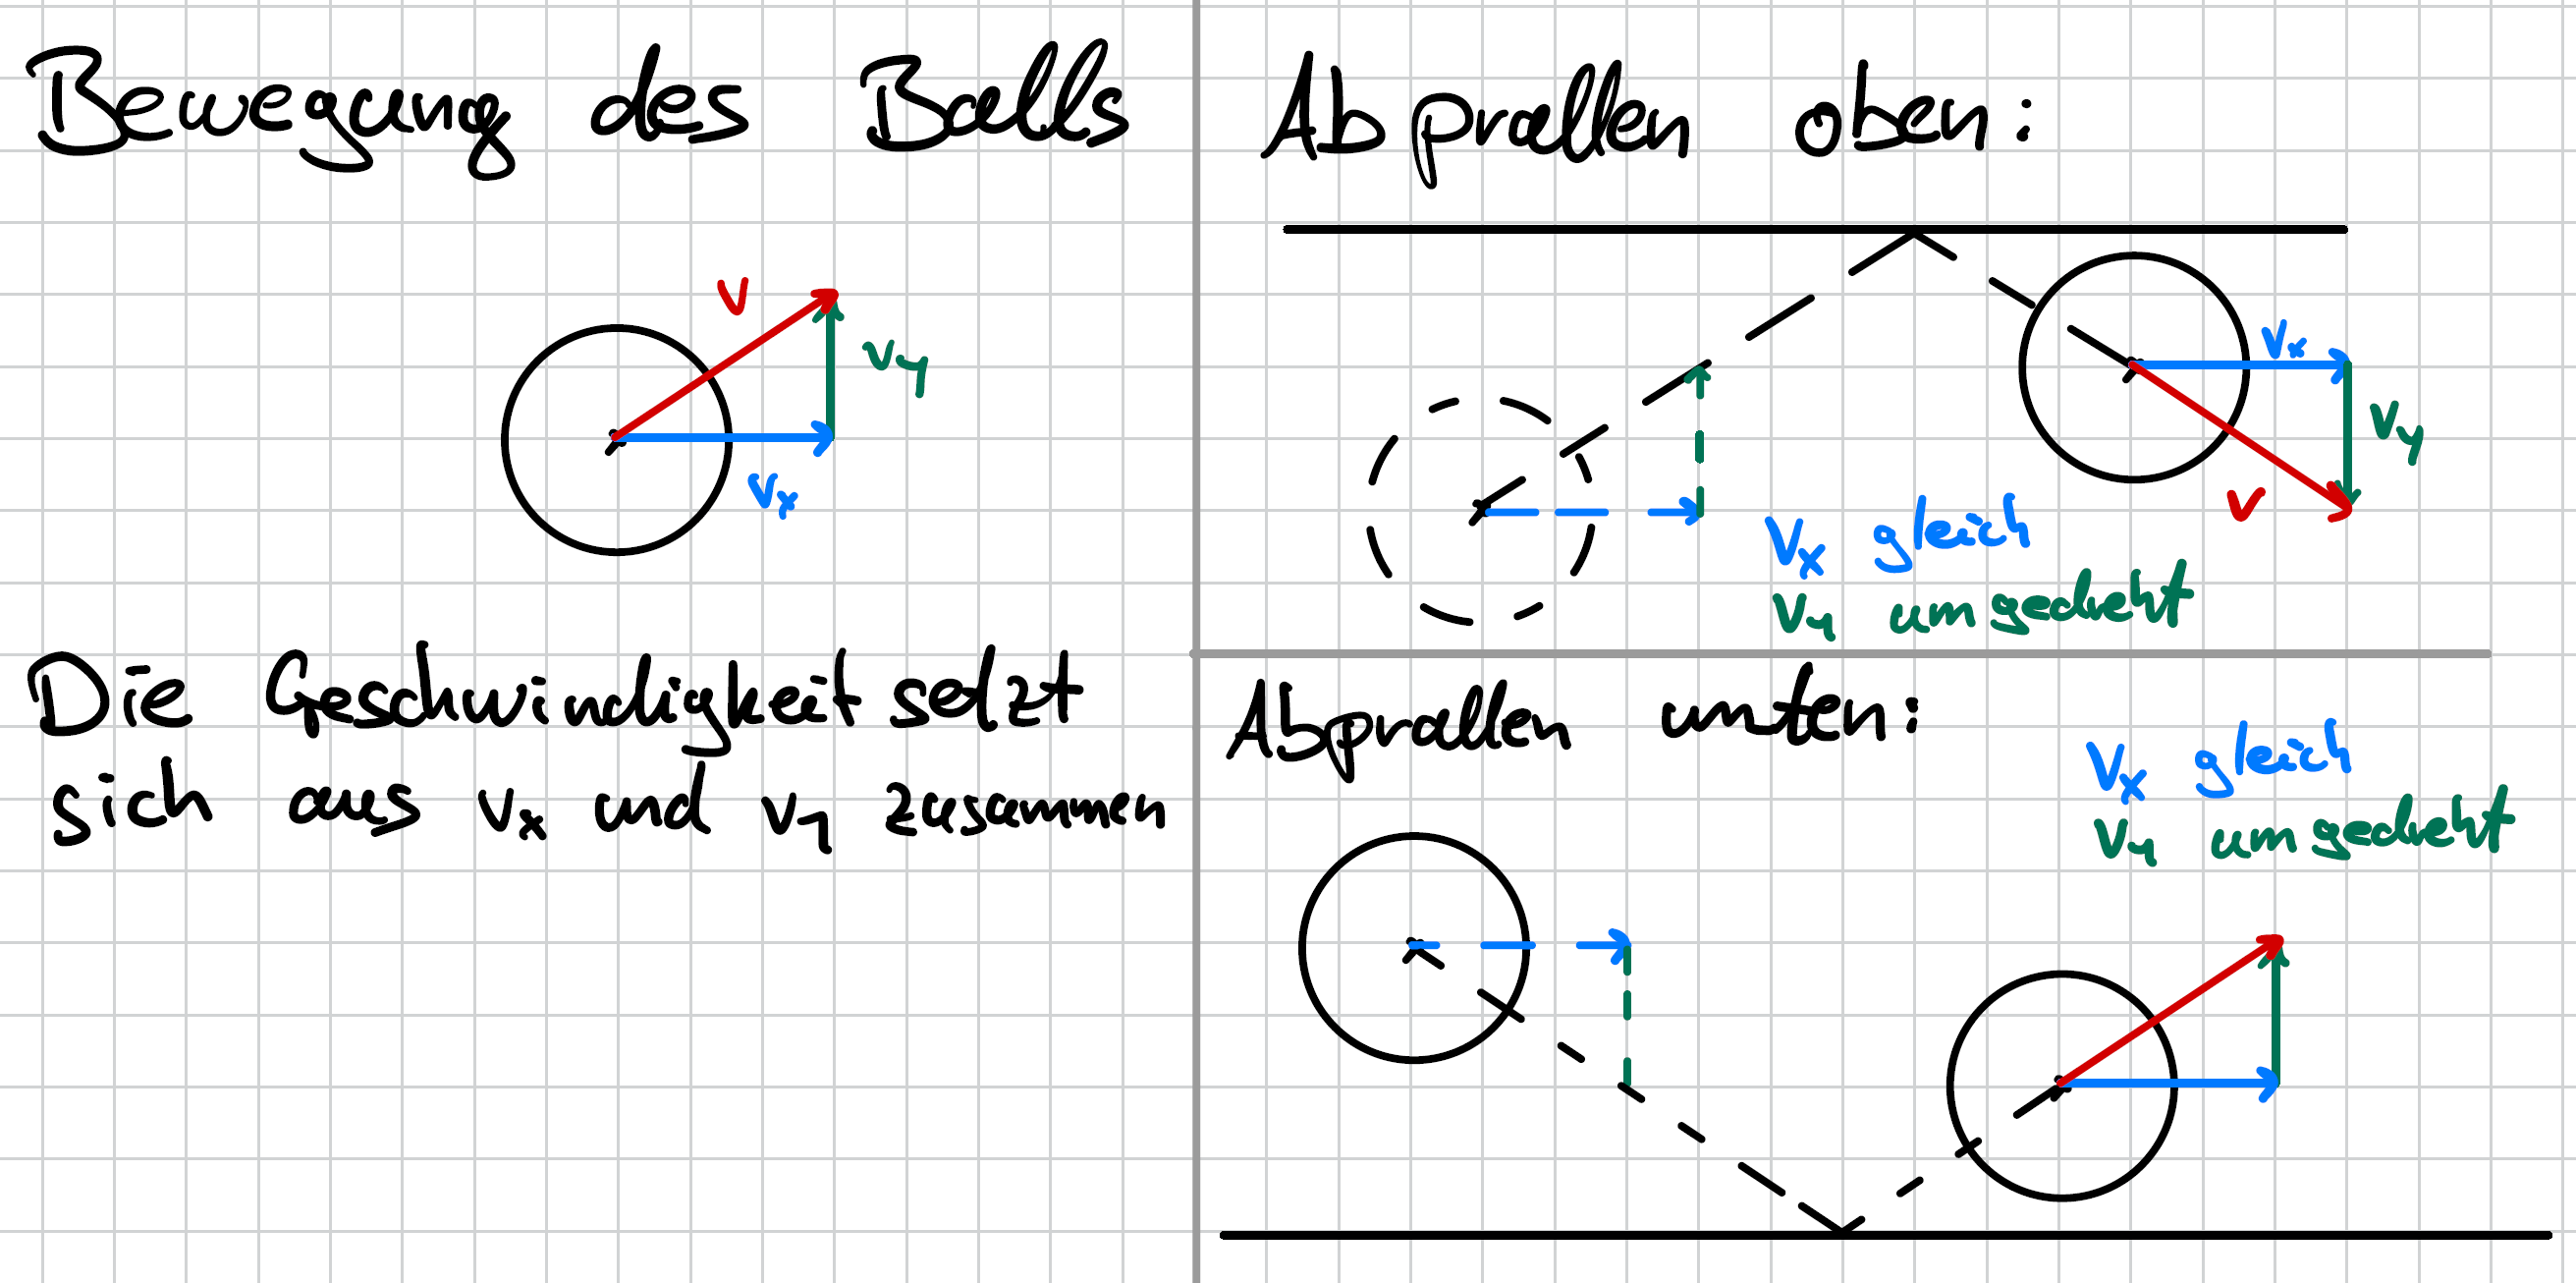 Bewegung des Balls
v
vy
vx
Die Geschwindigkeit setzt
sich aus vx und vy zusammen
Abprallen oben:
vx
vy
v
vx gleich
vy umgedreht
Abprallen unten:
vx gleich
vy umgedreht